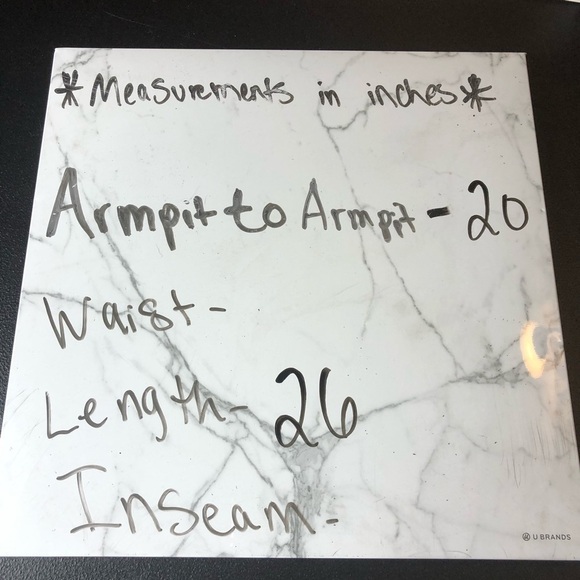 *Measurements in inches*
Armpit to Armpit - 20
Waist -
Length - 26
Inseam -
U BRANDS